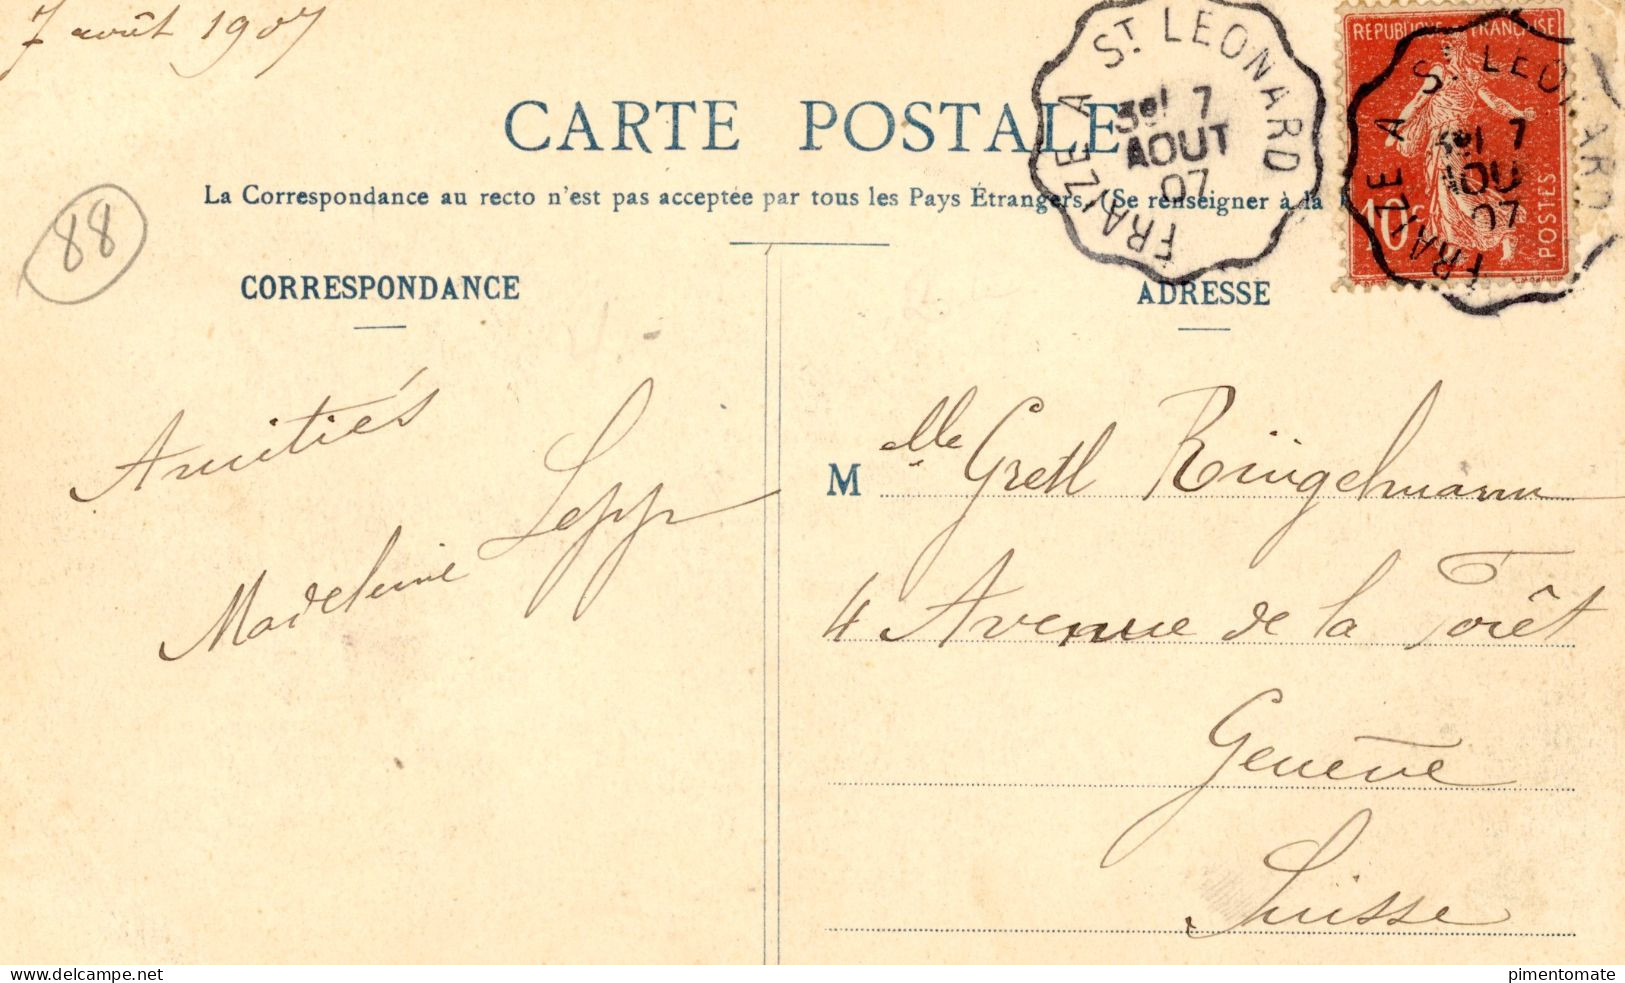 7 août 1907
CARTE POSTALE
La Correspondance au recto n'est pas acceptée par tous les Pays Étrangers. (Se renseigner à la
88
FRAIZE A ST LEONARD
3el 7
AOUT
07
REPUBLIQUE FRANÇAISE
10c
POSTES
FRAIZE A ST LEONARD
3el 7
OU
07
CORRESPONDANCE
ADRESSE
Amitiés
Madeleine Lepp
M elle Gretl Ringelmann
4 Avenue de la Forêt
Genève
Suisse
delcampe.net
pimentomate